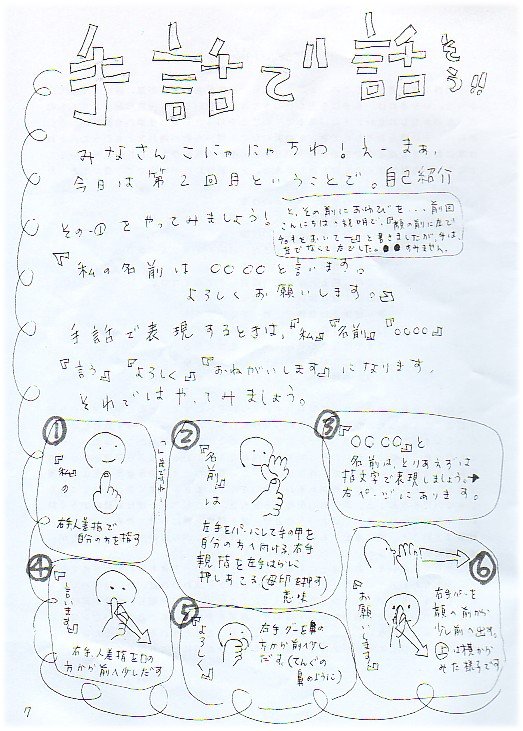 手話で話そう!!
みなさんこにゃにゃちわ!えーまぁ、
今日は第2回目ということで。自己紹介
その①をやってみましょう!
と、その前におわびを...前回
こんにちはの説明で、『顔の前に左で
チョキをおいて─』と書きましたが、チョキは
左でなくて右でした。●●すみません。
『私の名前は○○○○と言います。
よろしくお願いします。』
手話で表現するときは、『私』『名前』『○○○○』
『言う』『よろしく』『おねがいします』になります。
それではやってみましょう。
①
『私』の
右手人差指で
自分の方を指す
②
『名前』は
左手をパーにして手の甲を
自分の方へ向ける、右手
親指を左手はらに
押しあてる(母印を押す)
意味
③
『○○○○』と
名前は、とりあえずは
指文字で表現しましょう。→
右ページにあります。
④
『言います』
右手、人差指を口の
方から前へ少しだす
⑤
『よろしく』
右手グーを鼻の
方から前へ少し
だす。(てんぐの
鼻のように)
⑥
『お願いします』
右手パーを
顔の前から
少し前へ出す。
上は横から
みた様子です
7